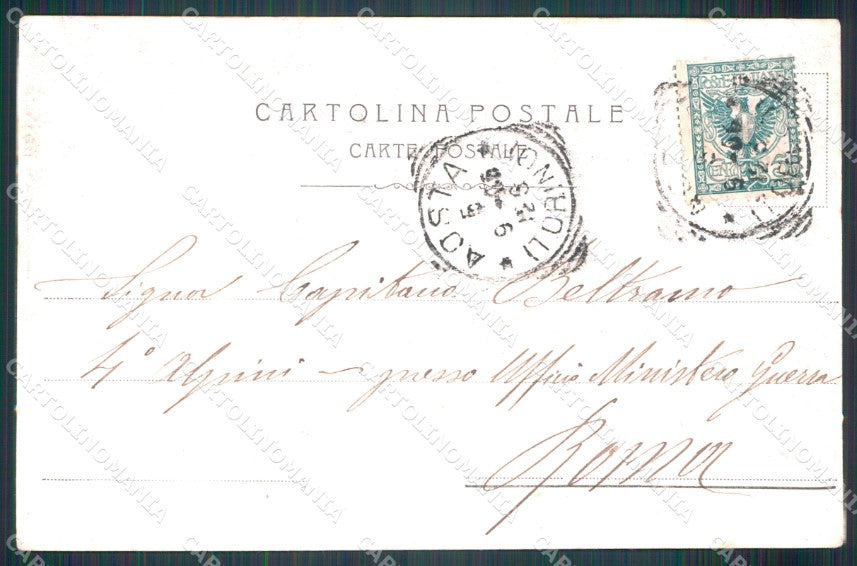 CARTOLINA POSTALE
CARTE POSTALE
AOSTA * (TORINO)
Signor Capitano Beltramo
4° Alpini – presso Ufficio Ministero Guerra
Roma
CARTOLINOMANIA